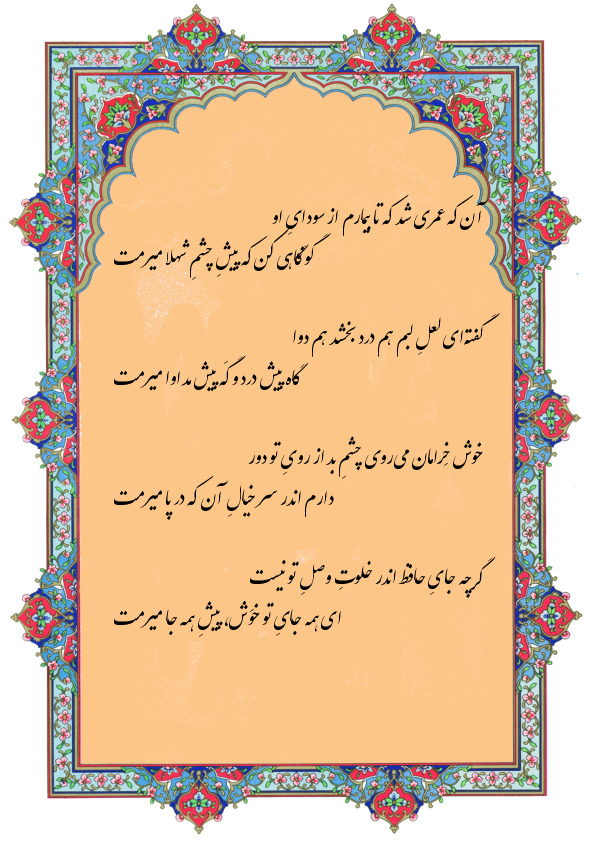 آن که عمری شد که تا بیمارم از سودایِ او
گو نگاهی کن که پیشِ چشمِ شهلا میرمت
گفته‌ای لعلِ لبم هم درد بخشد هم دوا
گاه پیش درد و گَه پیش مداوا میرمت
خوش خِرامان می‌روی چشمِ بد از رویِ تو دور
دارم اندر سر خیالِ آن که در پا میرمت
گر چه جایِ حافظ اندر خلوتِ وصلِ تو نیست
ای همه جایِ تو خوَش، پیشِ همه جا میرمت